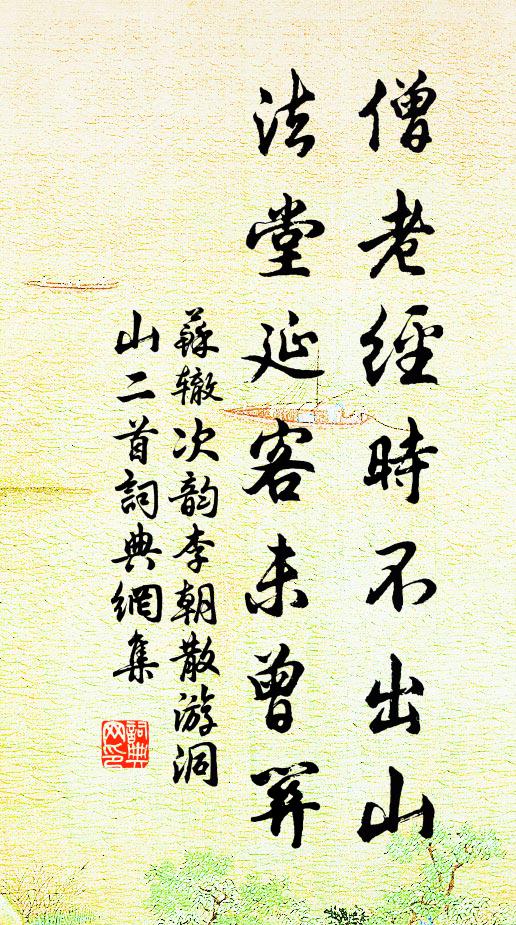 僧老經時不出山
法堂延客未曾關
蘇辙次韵李朝散游洞
山二首詞典網集
詞典
网印